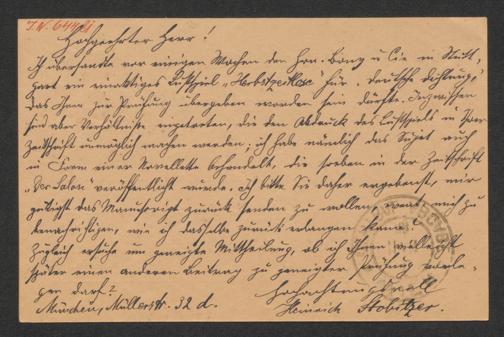 J.N. 644
Hochgeehrter Herr!
Ich übersandte vor einigen Wochen den Hrn. Bonz u Cie in Stutt-
gart ein einaktiges Lustspiel „ für „Deutsche Dichtung",
das Ihnen zur Prüfung übergeben worden sein dürfte. Inzwischen
sind aber Verhältnisse eingetreten, die den Abdruck des Lustspiels in Ihrer
Zeitschrift unmöglich machen werden; ich habe nämlich das Sujet auch
in Form einer Novellette behandelt, die soeben in der Zeitschrift
„Der Salon" veröffentlicht wurde. Ich bitte Sie daher ergebenst, mir
gütigst das Manuscript zurück senden zu wollen, mich zu
benachrichtigen, wie ich dasselbe zurück erlangen kann.
Zugleich ersuche um geneigte Mittheilung, ob ich Ihnen vielleicht
später einen anderen Beitrag zu geneigter Prüfung vorle-
gen darf?
Hochachtungsvoll
München, Müllerstr. 32 d. Heinrich Stobitzer.